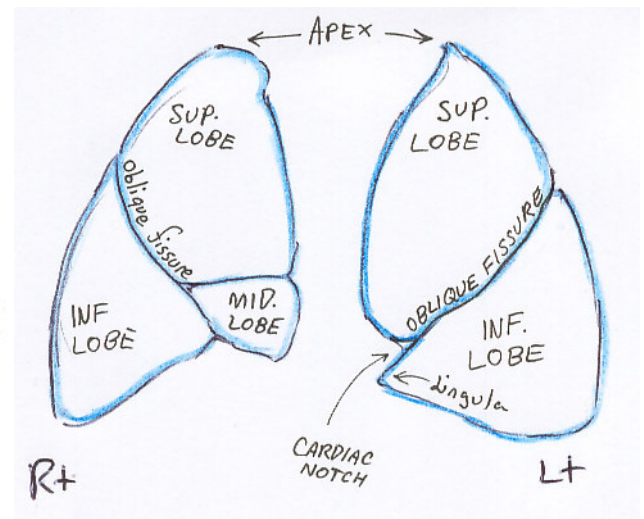 APEX
SUP.
LOBE
oblique fissure
INF
LOBE
MID.
LOBE
SUP.
LOBE
OBLIQUE FISSURE
INF.
LOBE
Lingula
CARDIAC
NOTCH
R+
L+